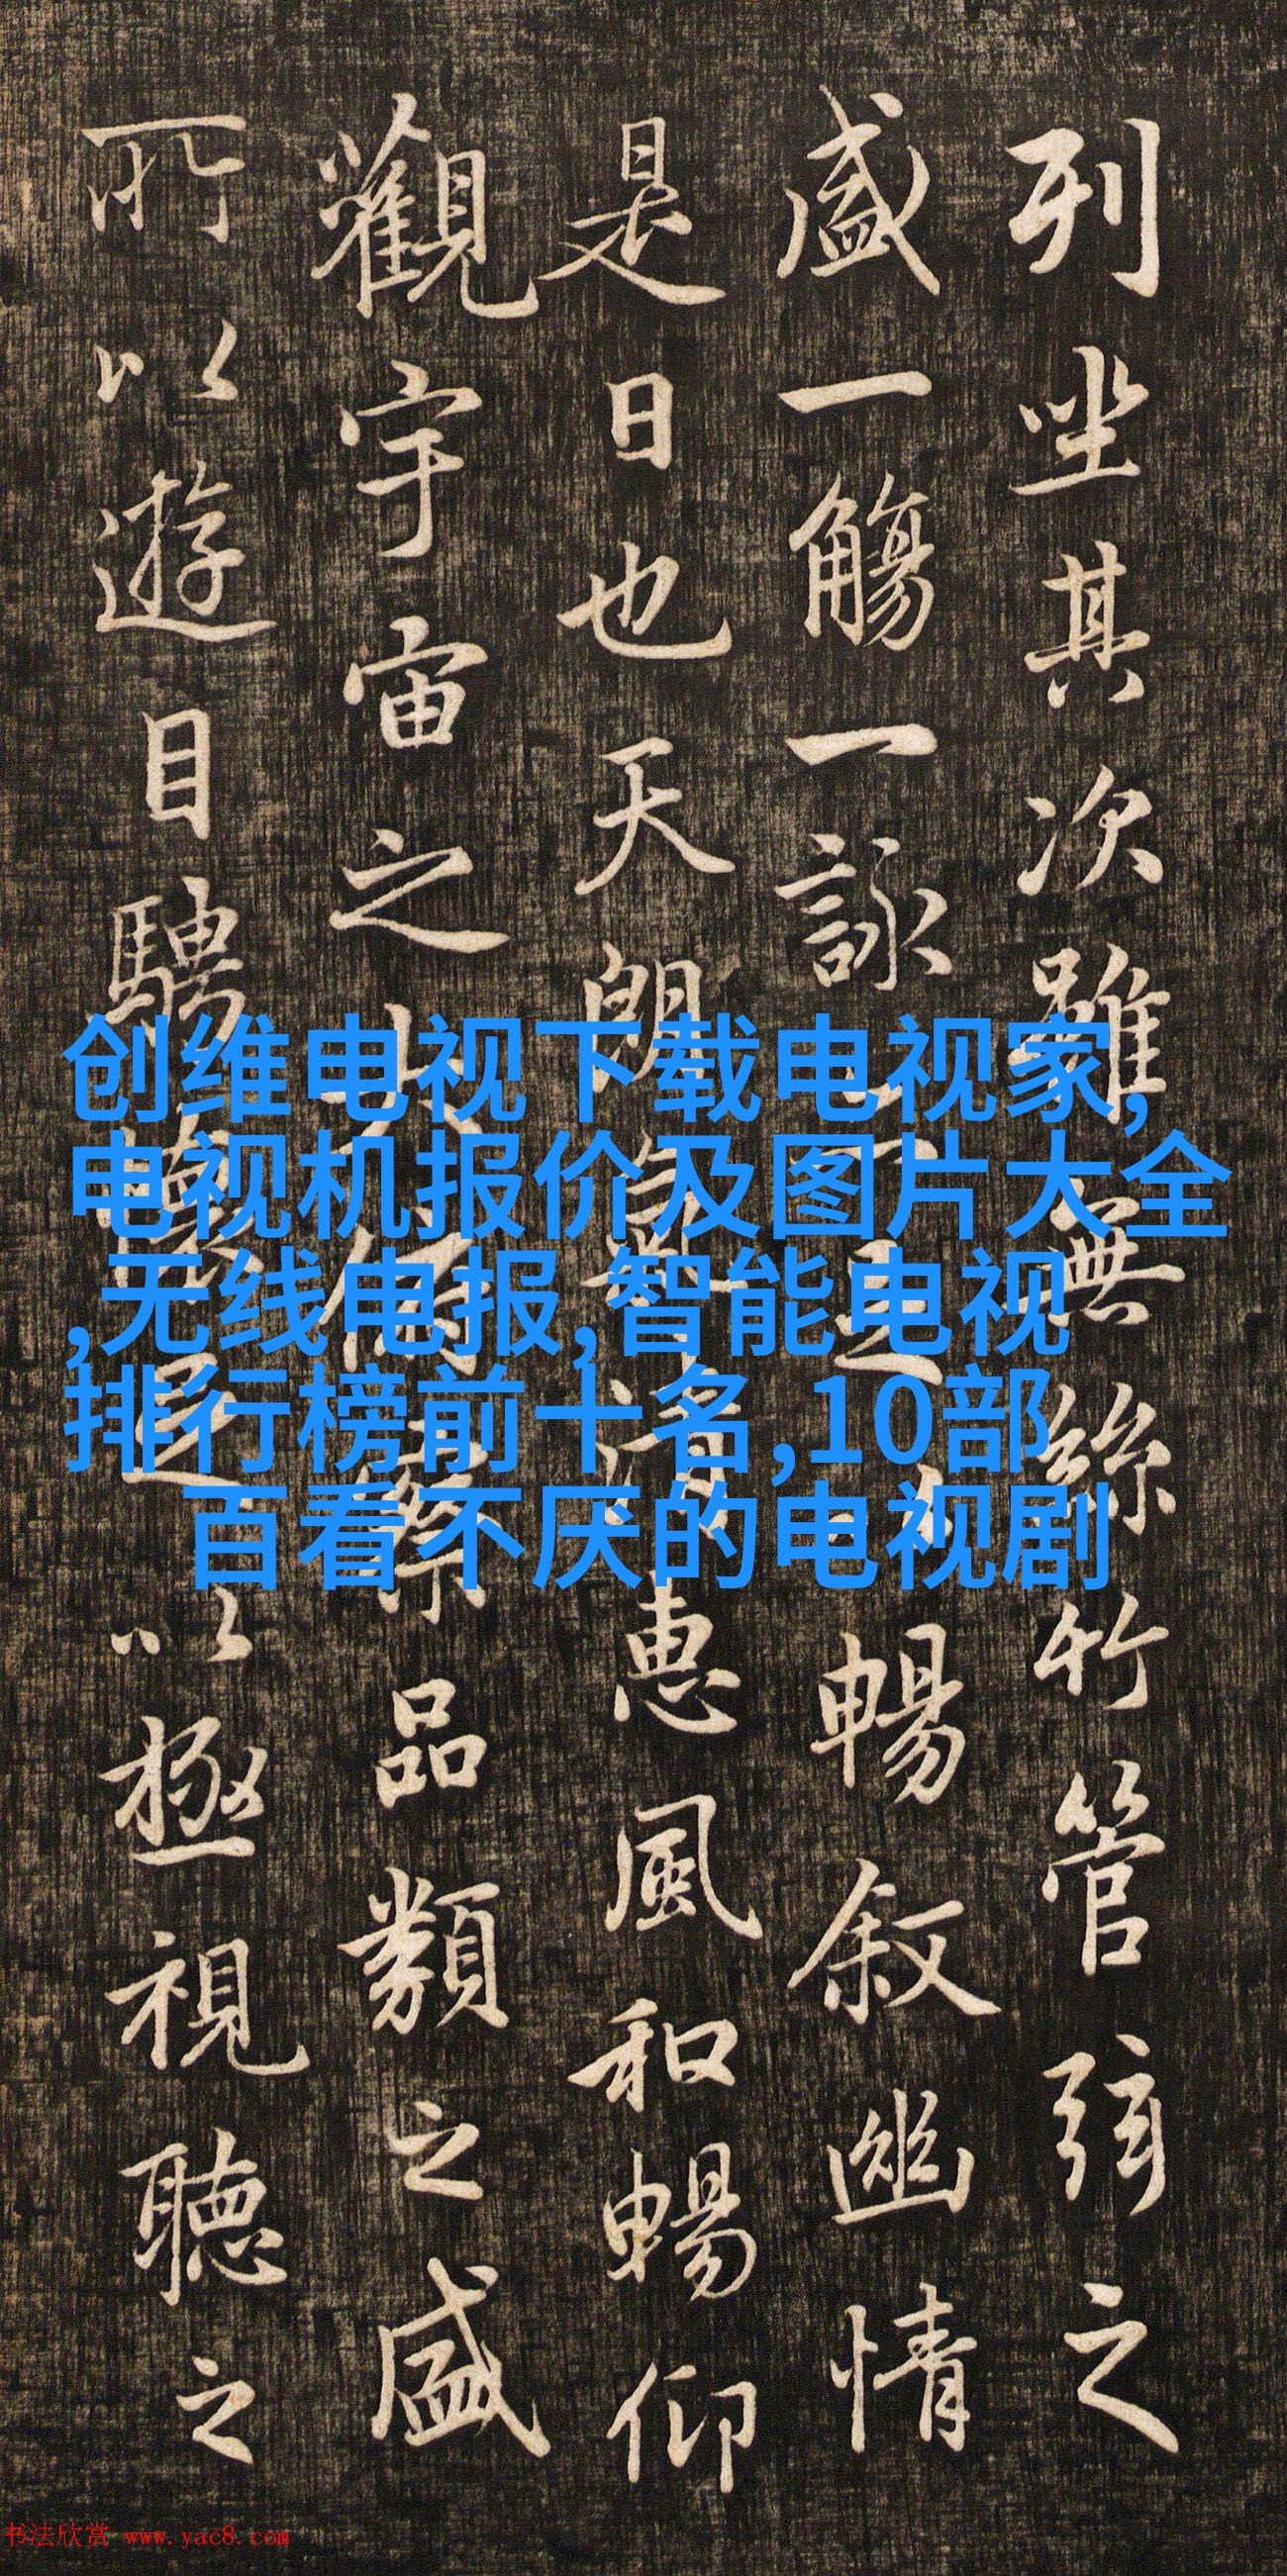 列坐其次雖無絲竹管弦之
盛一觴一詠亦足以暢叙幽情
是日也天朗氣清惠風和暢仰
觀宇宙之大俯察品類之盛
所以遊目騁懷足以極視聽之
创维电视下载电视家,
电视机报价及图片大全
,无线电报,智能电视
排行榜前十名,10部
百看不厌的电视剧
书法欣赏 www.yac8.com